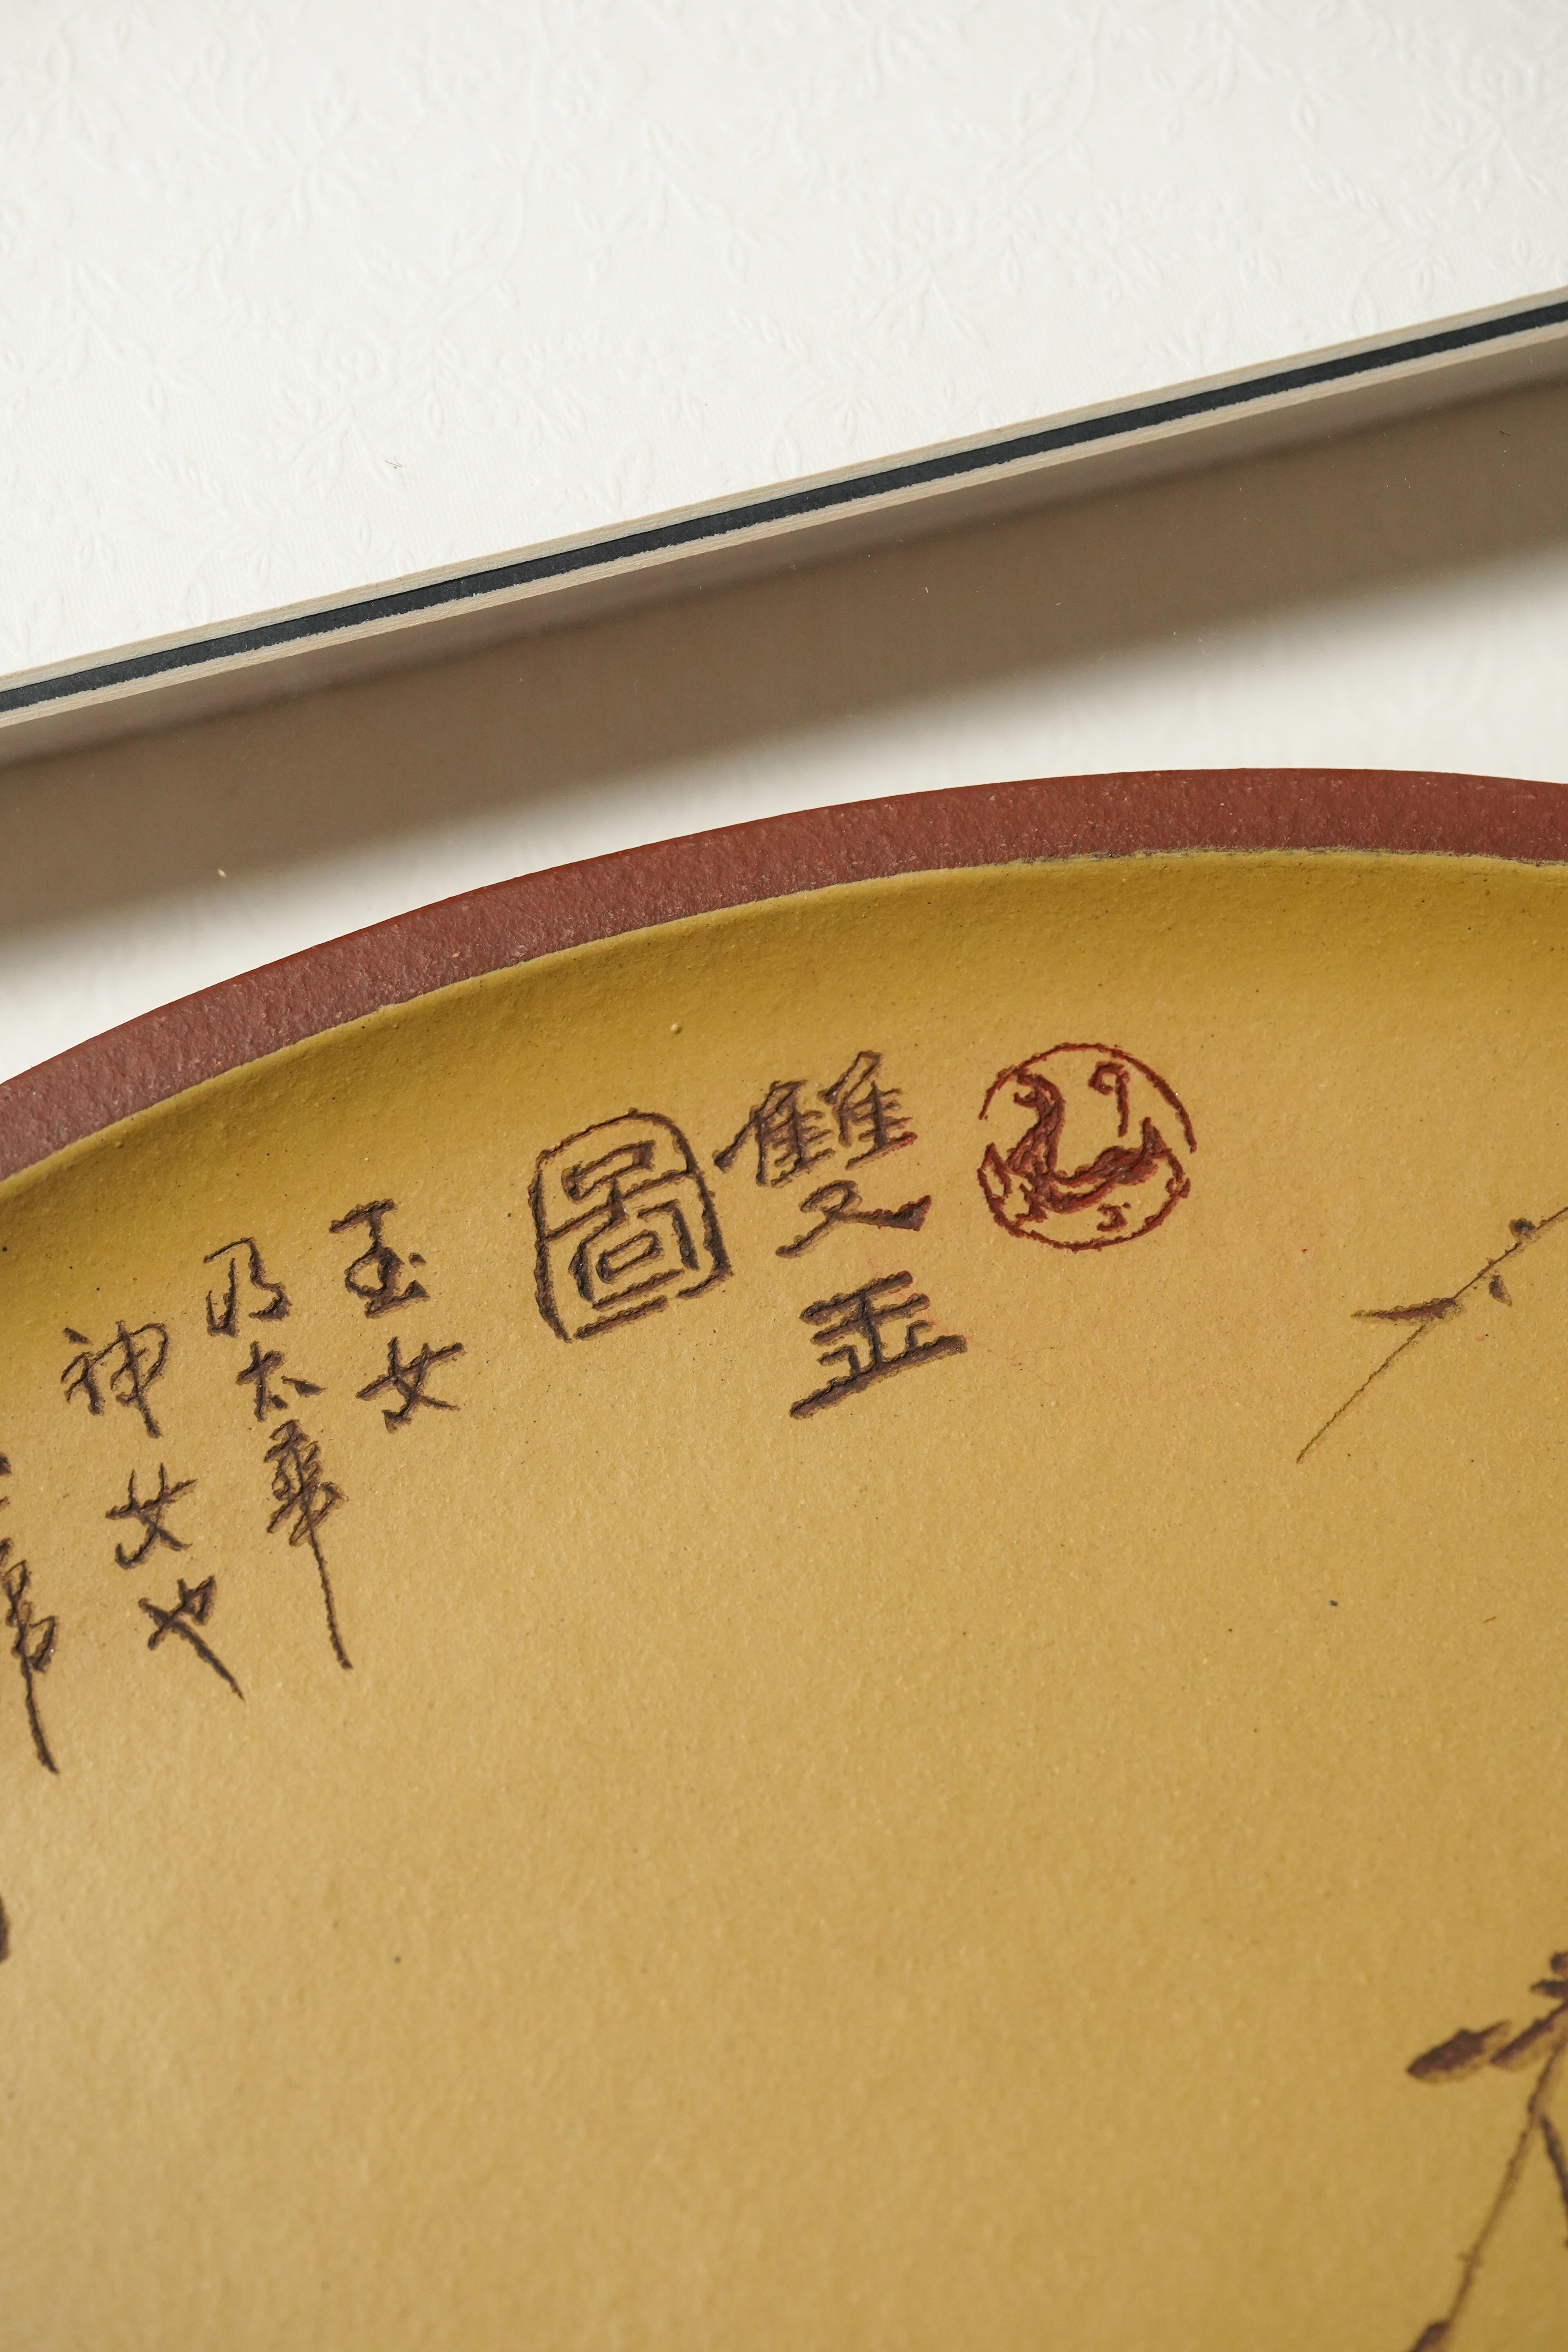 雙玉
圖
玉女
乃太華
神女也